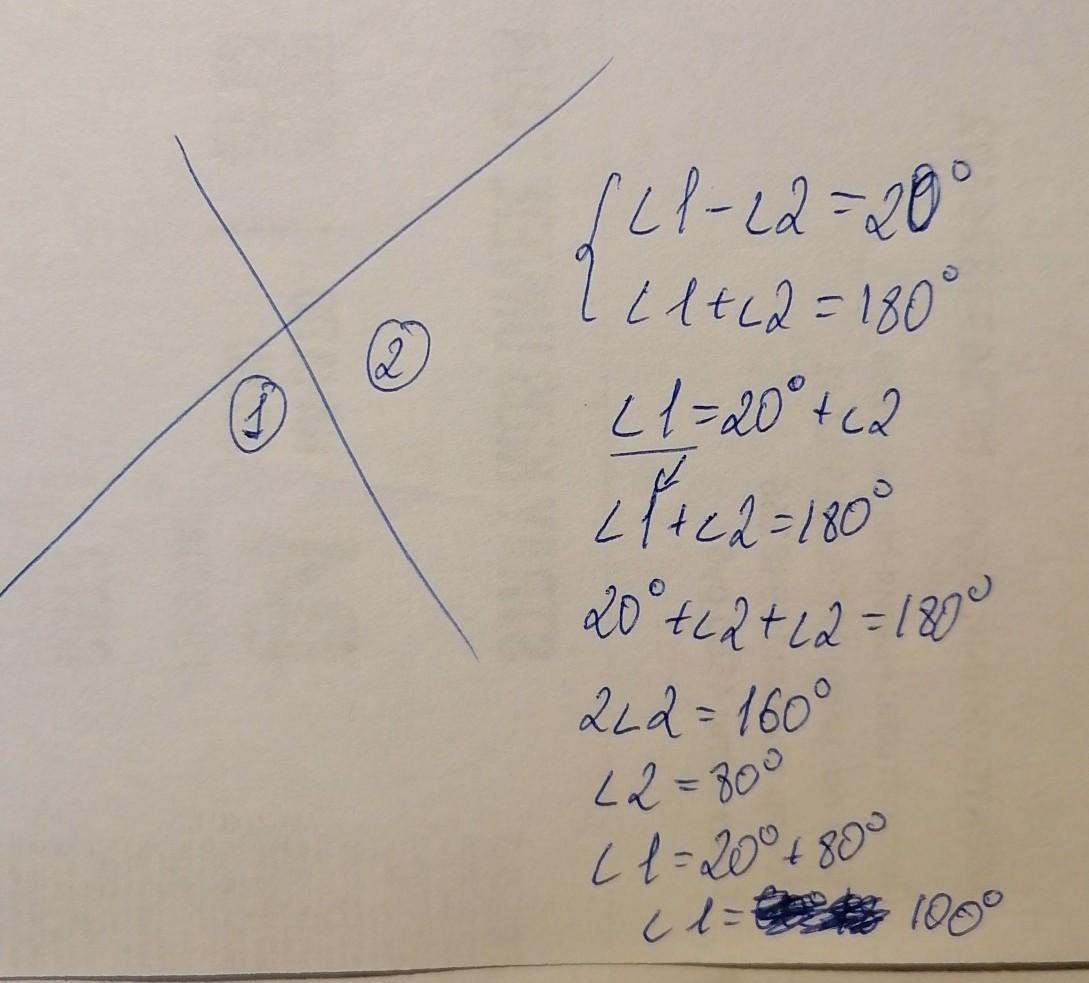 1
2
∠1-∠2=20°
∠1+∠2=180°
∠1=20°+∠2
∠1+∠2=180°
20°+∠2+∠2=180°
2∠2=160°
∠2=80°
∠1=20°+80°
∠1= 100°